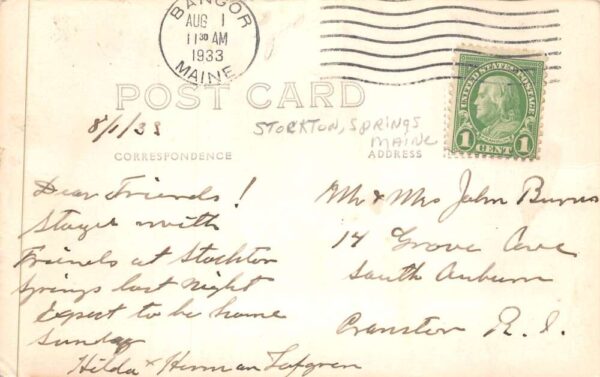 BANGOR
AUG 1
11 30 AM
1933
MAINE
UNITED STATES POSTAGE
1 CENT 1
POST CARD
8/1/33
STOCKTON, SPRINGS
MAINE
CORRESPONDENCE
ADDRESS
Dear Friends!
Stayed with
Friends at Stockton
Springs last night
Expect to be home
Sunday
Hilda & Herman Lofgren
Mr & Mrs John Burns
14 Grove Ave
South Auburn
Cranston R.I.